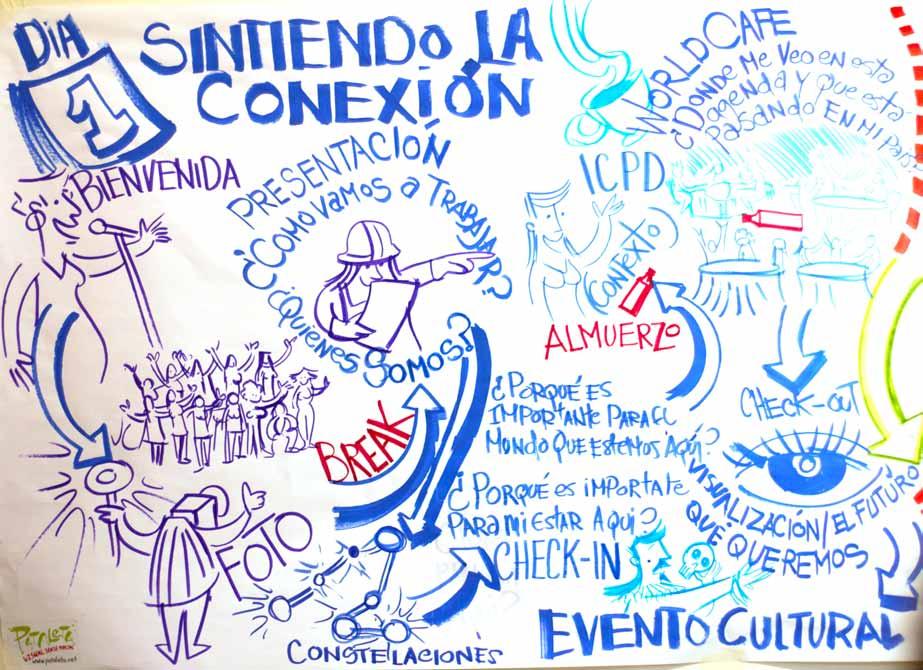 DíA
1
SINTIENDO LA
CONEXIÓN
BIENVENIDA
FOTO
PRESENTACIÓN
¿COMO VAMOS a TRABAJAR?
¿QUIENES SOMOS?
BREAK
CONSTELACIONES
CHECK-IN
¿PORQUÉ ES IMPORTATE
PARA MI ESTAR AQUI?
¿PORQUÉ ES
IMPORTANTE PARA EL
MUNDO QUE ESTEMOS AQUÍ?
ICPD
(CONTEXTO)
ALMUERZO
WORLD CAFE
¿DONDE ME VEO EN ESTA
AGENDA Y QUE ESTA
PASANDO EN MI PAIS?
CHECK-OUT
VISUALIZACIÓN/EL FUTURO
QUE QUEREMOS
EVENTO CULTURAL
www.pataleta.net